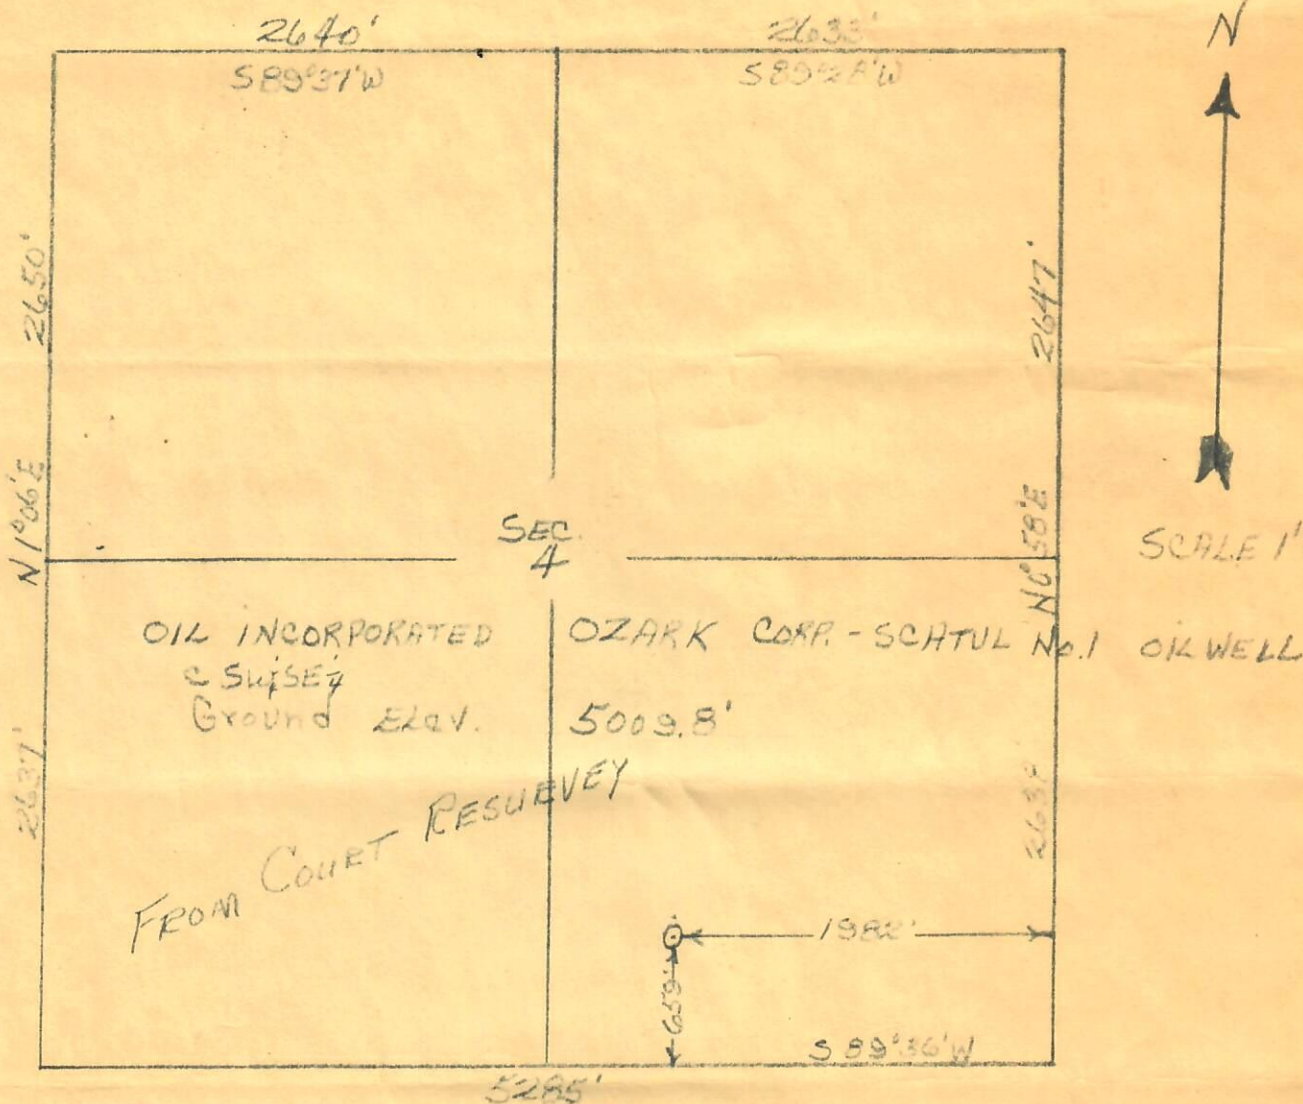 2640' 2633'
S89°37'W S89°28'W
N
2650'
2647'
N1°06'E
N0°58'E
SEC.
4
SCALE 1"
OIL INCORPORATED OZARK CORP. - SCHTUL No.1 OIL WELL
C SW¼SE¼
Ground Elev. 5009.8'
2637'
FROM COURT RESUEVEY
1982'
659'
S 89°36'W
5285'